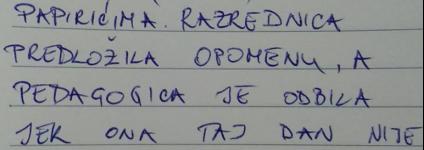 PAPIRIĆIMA. RAZREDNICA
PREDLOŽILA OPOMENU, A
PEDAGOGICA JE ODBILA
JER ONA TAJ DAN NIJE